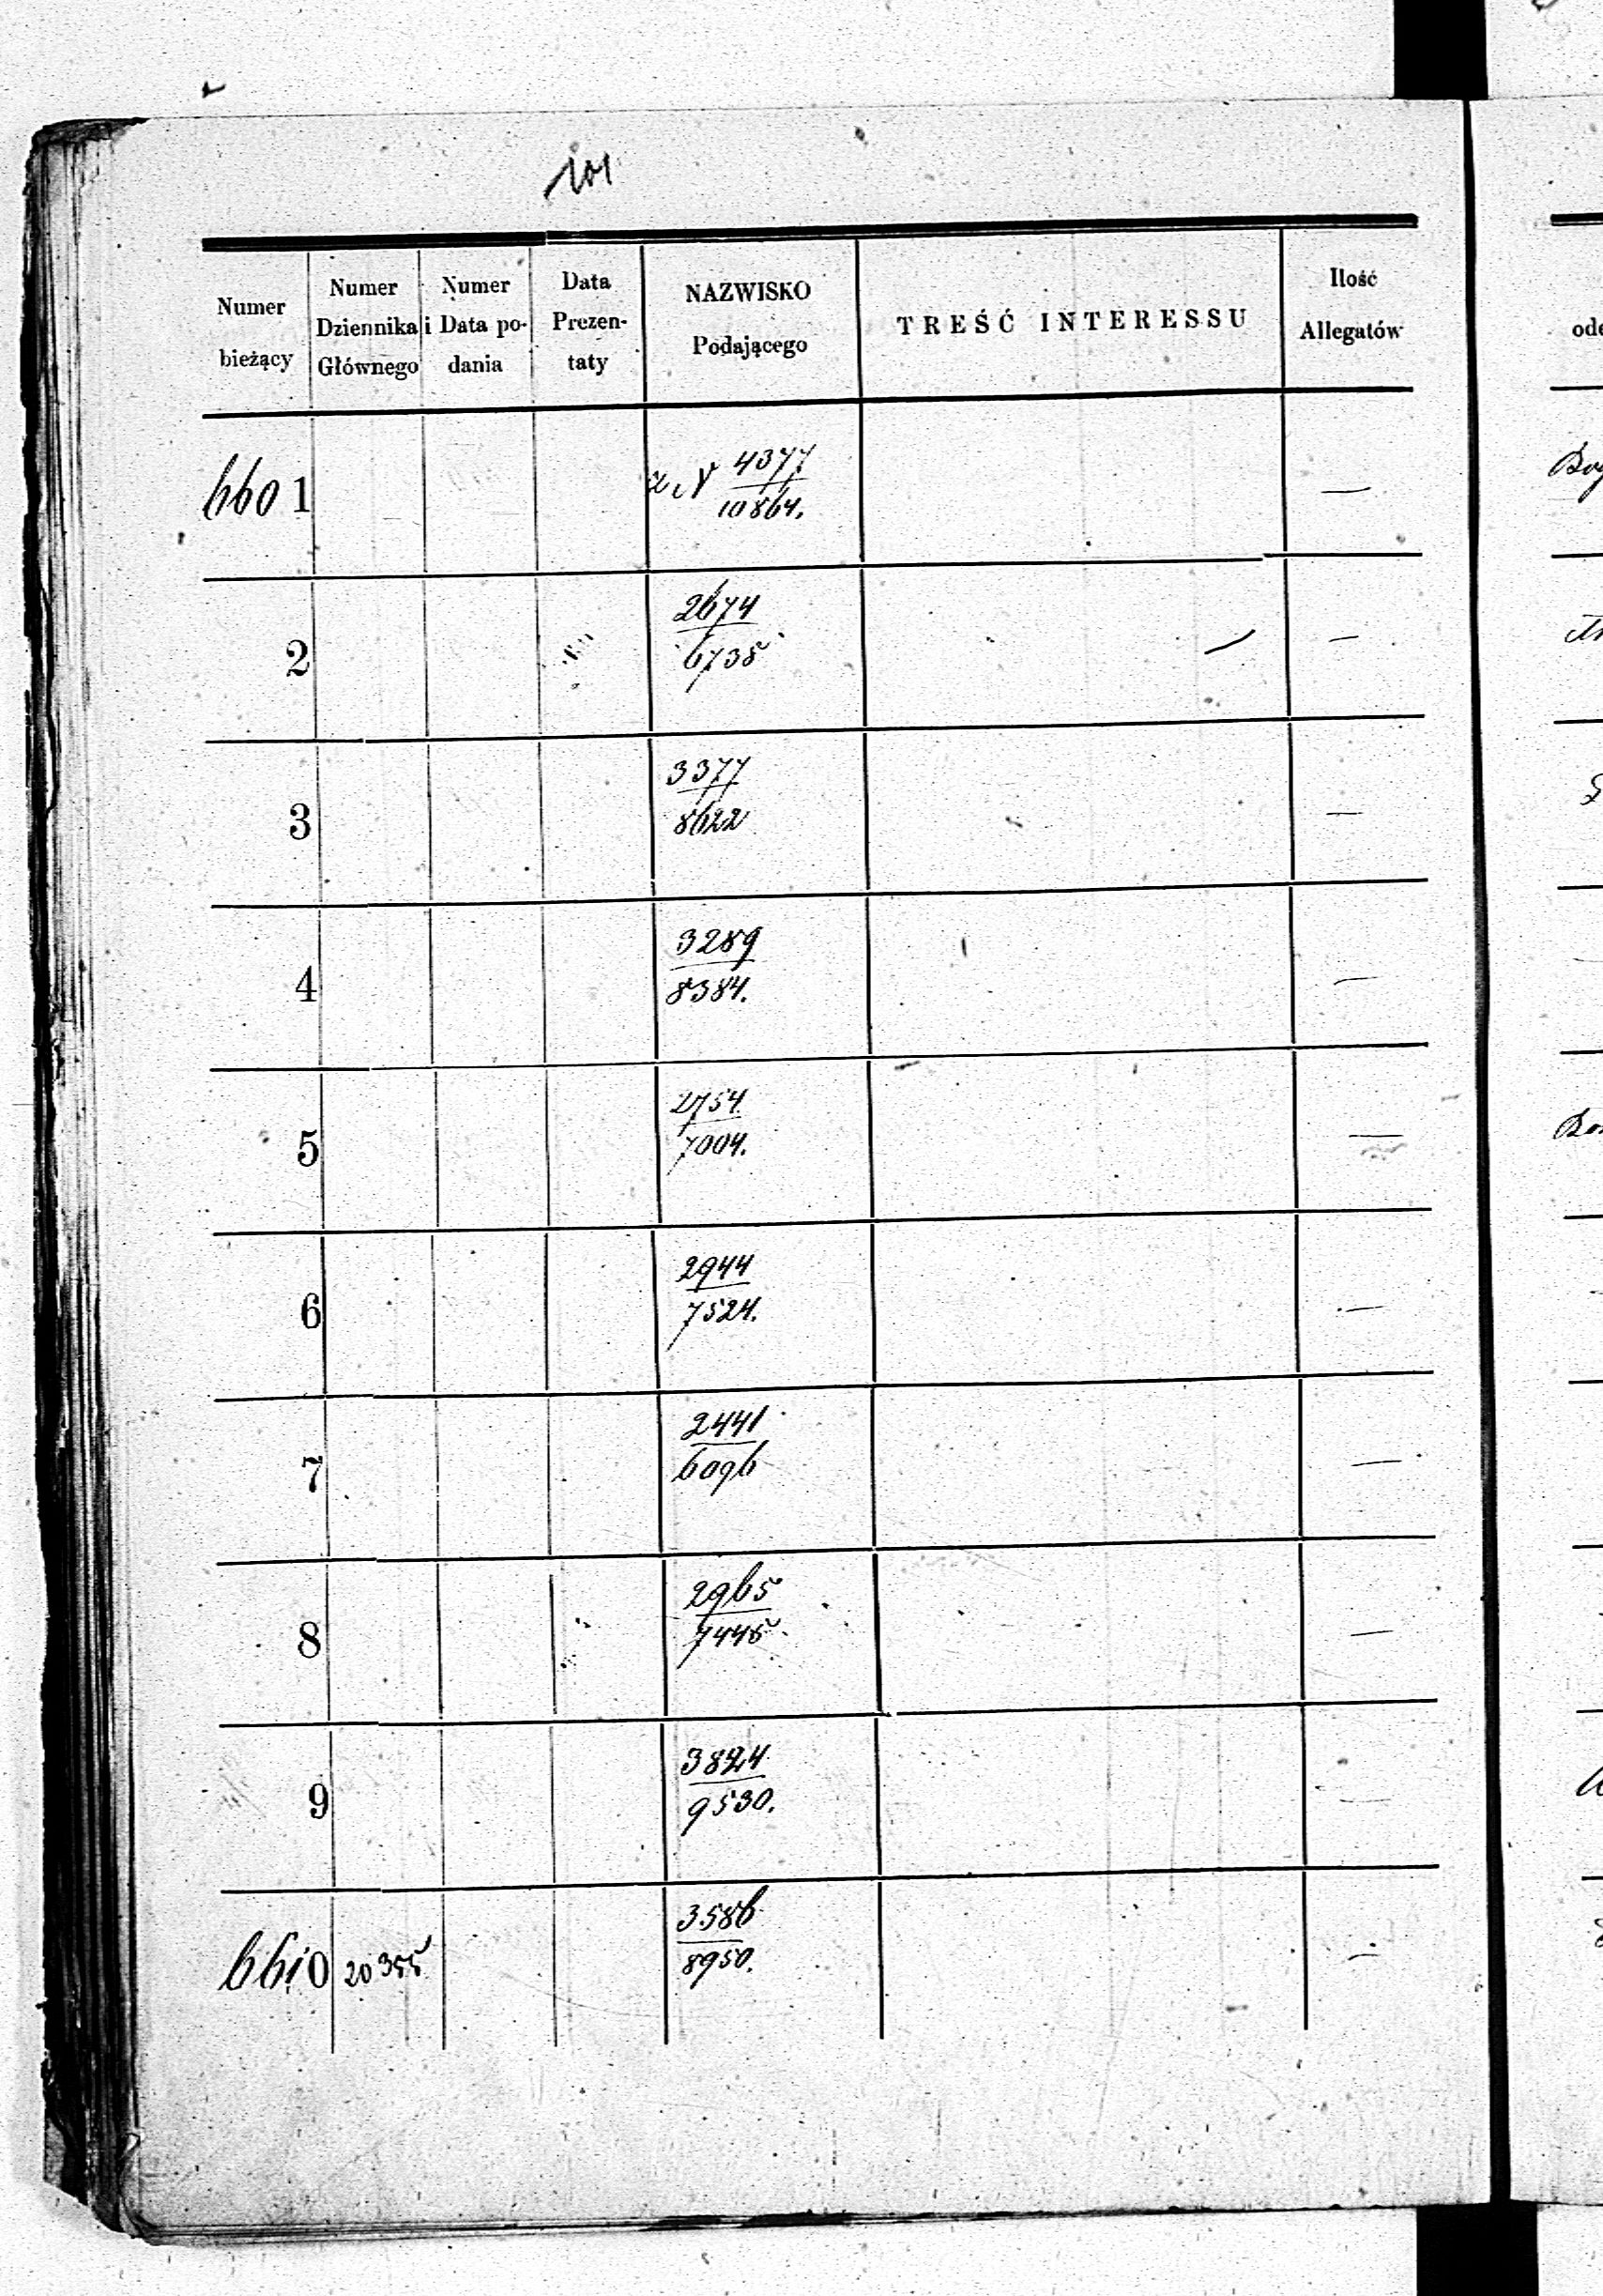 101
Numer bieżący
Numer Dziennika Głównego
Numer i Data podania
Data Prezentaty
NAZWISKO Podającego
TREŚĆ INTERESSU
Ilość Allegatów
6601 z N 4377 —
10864.
2 2674 — —
6738
3 3377 —
8622
4 3289 —
8384.
5 2754. —
7004.
6 2944 —
7524.
7 2441 —
6096
8 2965 —
7445
9 3824 —
9530.
6610 20355 3586 —
8950.